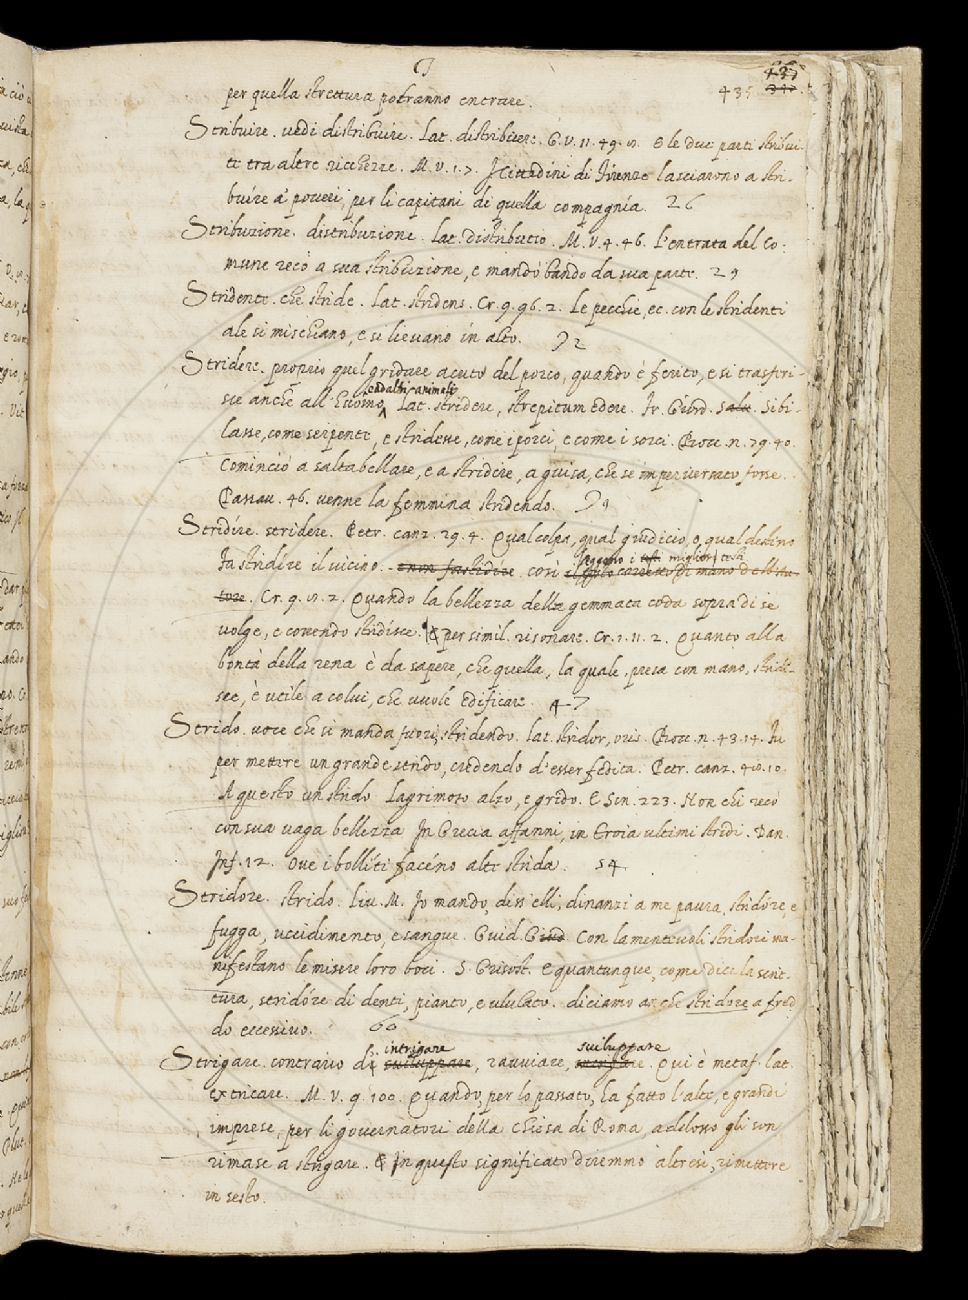 435
per quella strettura potranno entrare.
Stribuire. vedi distribuire. Lat. distribuere. G.V. 11. 49. E le due parti stribui-
te tra altre ricchezze. M.V. 1.7. I Cittadini di Firenze lasciarono a stri-
buire a' poveri, per li capitani di quella compagnia. 26
Stribuzione. distribuzione. Lat. distributio. M.V. 4.46. L'entrata del Co-
mune recò a sua stribuzione, e mandò bando da sua parte. 29
Stridente. che stride. Lat. stridens. Cr. 9.96.2. Le pecchie, ec. con le stridenti
ale si mischiano, e si lievano in alto. 32
Stridere. proprio quel gridare acuto del porco, quando è ferito, e si trasferi-
ed altri animali
sce anche all' huomo, Lat. stridere, strepitum edere. Sibi-
lasse, come serpente, e stridesse, come i porci, e come i sorci. Bocc. n. 79.40.
Cominciò a saltabellare, e a stridere, a guisa, che se imperversato fosse.
Passav. 46. venne la femmina stridendo. 39
Stridire. stridere. Petr. canz. 29.4. Qual colpa, qual giudicio, o qual destino
leggono i migliori testi
Fastidire il vicino. così
Cr. 9. 2. Quando la bellezza della gemmata coda sopra di se
volge, e correndo stridisce. & per simil. risonare. Cr. 1.11.2. Quanto alla
bontà della rena è da sapere, che quella, la quale, presa con mano, stridi-
sce, è utile a colui, che vuole edificare. 47
Strido. voce che si manda fuori, stridendo. lat. stridor, oris. Bocc. n. 43.14.
per mettere un grande strido, credendo d'esser fedita. Petr. canz. 40.10.
A questo un strido Lagrimoso alzo, e grido. E Son. 223. Non chi recò
con sua vaga bellezza In Grecia affanni, in Troia ultimi stridi. Dan.
Inf. 12. Ove i bolliti facéno alte strida. 54
Stridore. strido. Liv. M. Io mando, diss' elli, dinanzi a me paura, stridore e
fugga, uccidimento, e sangue. Guid. G. Con lamentevoli stridori ma-
nifestano le misere loro boci. S. Grisost. E quantunque, come dice la scrit-
tura, stridóre di denti, pianto, e ululato. diciamo anche stridore a fred
do eccessivo. 60
intrigare sviluppare
Strigare. contrario di sviluppare, ravviare, Qui è metaf. lat.
extricare. M.V. 9.100. Quando, per lo passato, ha fatto l'alte, e grandi
imprese, per li governatori della chiesa di Roma, addosso gli son
rimase a strigare. & In questo significato diremmo altresì, rimettere
in sesto.